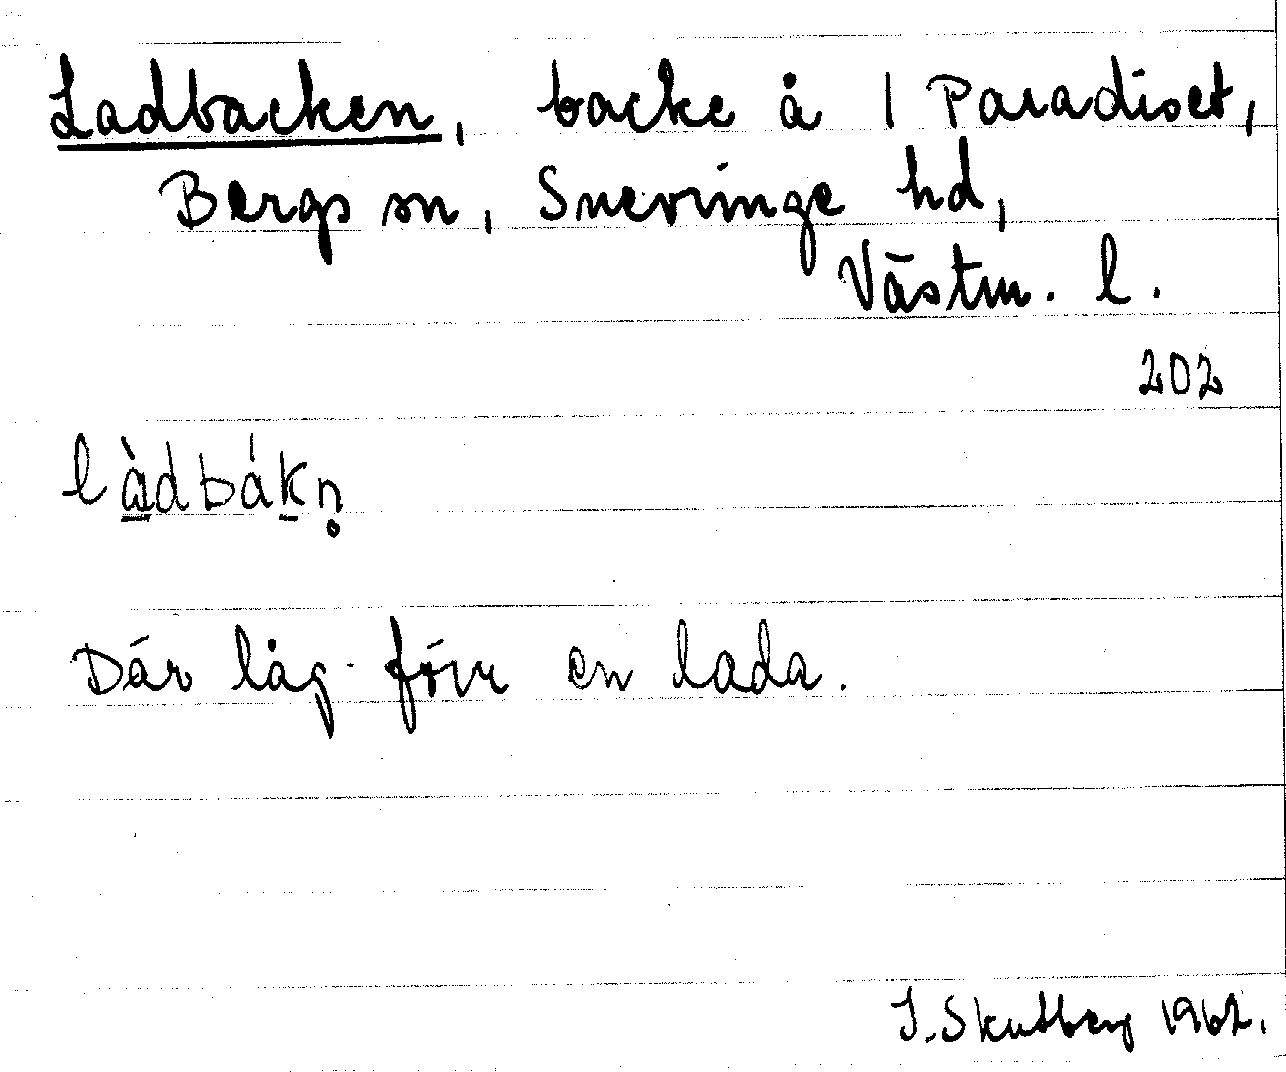 Ladbacken, backe å 1 Paradiset,
Bergs sn, Snevringe hd,
Västm. l.
202
làdbákn̥
Där låg förr en lada.
I. Skutberg 1962.